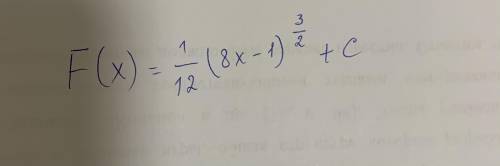 F(x) = \frac{1}{12} (8x-1)^{\frac{3}{2}} + C